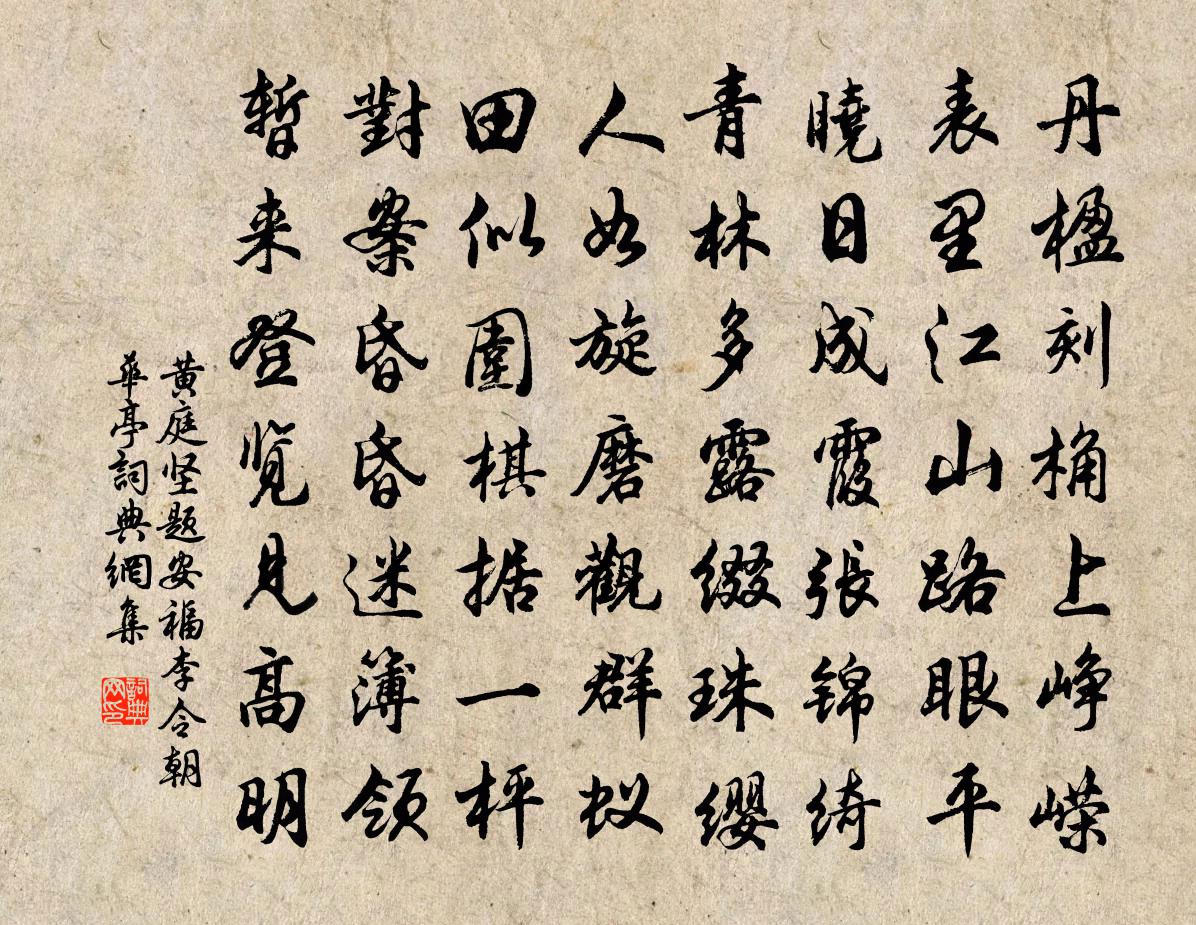 丹楹刻桷上峥嵘
表里江山路眼平
曉日成霞張锦绮
青林多露缀珠缨
人如旋磨觀群蚁
田似圍棋据一枰
對案昏昏迷簿领
暫来登览见高明
黄庭坚题安福李令朝
華亭詞典網集
詞典网印